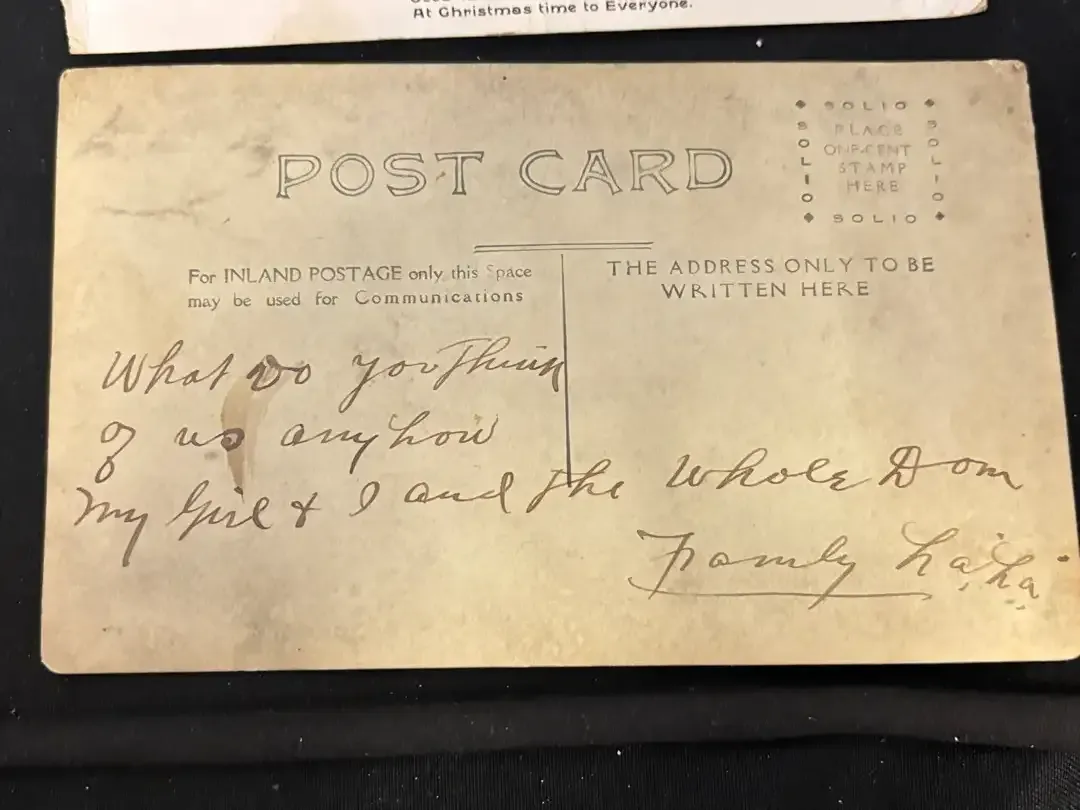 At Christmas time to Everyone.
POST CARD
SOLIO
SOLIO
PLACE
ONE-CENT
STAMP
HERE
SOLIO
SOLIO
For INLAND POSTAGE only this Space
may be used for Communications
THE ADDRESS ONLY TO BE
WRITTEN HERE
What Do you Think
of us anyhow
My Girl & I and the Whole Dom
Family ha, ha